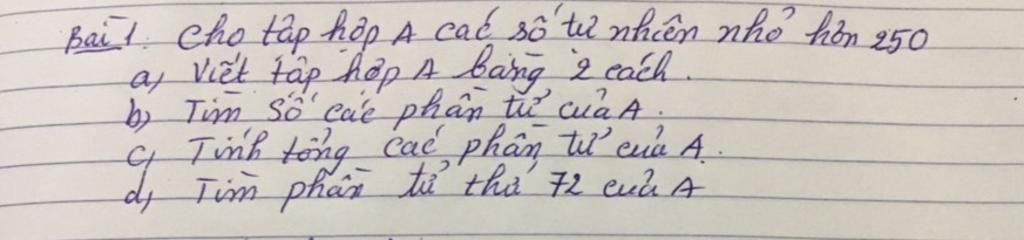 Bài 1. Cho tập hợp A các số tự nhiên nhỏ hơn 250
a, Viết tập hợp A bằng 2 cách.
b, Tìm số các phần tử của A.
c, Tính tổng các phần tử của A.
d, Tìm phần tử thứ 72 của A